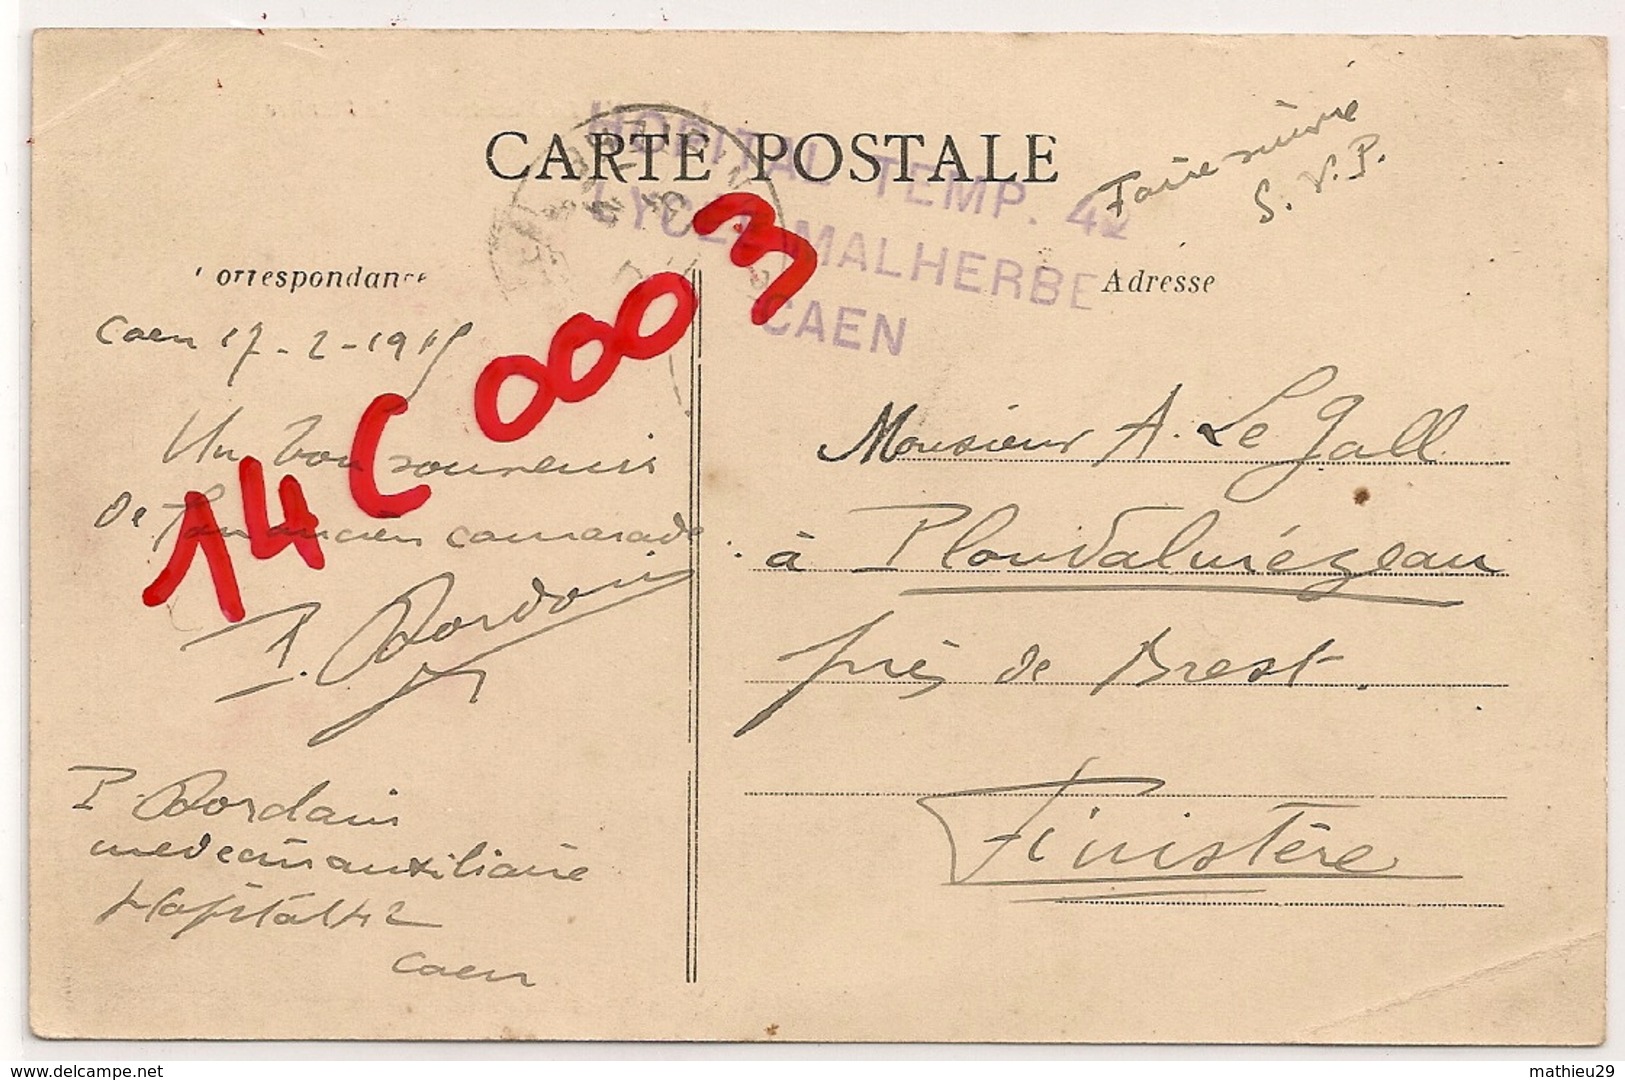 CARTE POSTALE
HOPITAL TEMP. 42
LYCEE MALHERBE
CAEN
Faire suivre
S.V.P.
Correspondance
Adresse
Caen 17-2-1915
Un bon souvenir
de ton ancien camarade
P. Bordain
P. Bordain
medecin auxiliaire
Hopital 42
Caen
Monsieur A. Le Gall
à Ploudalmézeau
près de Brest.
Finistère
14C0003
delcampe.net
mathieu29